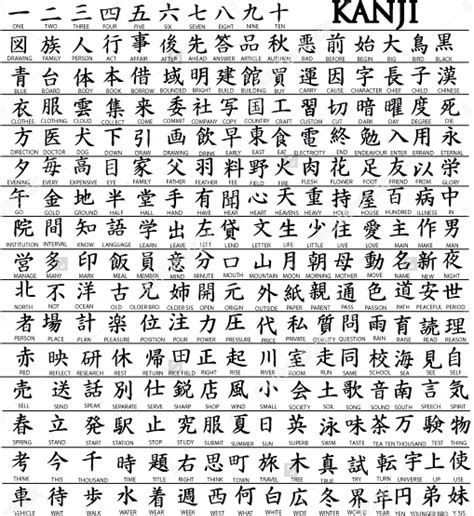 一 二 三 四 五 六 七 八 九 十 KANJI
ONE TWO THREE FOUR FIVE SIX SEVEN EIGHT NINE TEN
図 族 人 行 事 後 先 答 品 秋 悪 前 始 大 鳥 黒
DRAWING FAMILY PERSON ACT AFFAIR AFTER AHEAD ANSWER ARTICLE AUTUMN BAD BEFORE BEGIN BIG BIRD BLACK
青 台 体 本 借 域 明 建 館 買 運 因 字 長 子 漢
BLUE BOARD BODY BOOK BORROW BOUNDED BRIGHT BUILD BUILDING BUY CARRY CAUSE CHARACTER CHIEF CHILD CHINESE
衣 服 雲 集 来 委 社 写 国 工 習 切 暗 曜 度 死
CLOTHES CLOTHING CLOUD COLLECT COME COMMIT COMPANY COPY COUNTRY CRAFT CUSTOM CUT DARK DAY DEGREE DIE
方 医 犬 下 引 画 飲 早 東 食 電 終 勉 入 用 永
DIRECTION DOCTOR DOG DOWN DRAW DRAWING DRINK EARLY EAST EAT ELECTRICITY END ENDEAVOUR ENTER ERRAND ETERNAL
夕 毎 高 目 家 父 羽 料 野 火 肉 花 足 友 以 学
EVENING EVERY EXPENSIVE EYE FAMILY FATHER FEATHER FEE FIRE FLESH FLOWER FOOT FRIEND
午 金 地 半 堂 手 有 心 天 重 持 屋 百 病 中
GO GOLD GROUND HALF HALL HAND HAVE HEAR HEART HEAVENS HEAVY HOLD HOUSE HUNDRED ILLNESS IN
院 間 知 語 学 出 左 貸 文 生 少 住 愛 主 作 男
INSTITUTION INTERVAL KNOW LANGUAGE LEARN LEAVE LEFT LEND LETTER LIFE LITTLE LIVE LOVE MAN MAKE MAN
営 多 印 飯 員 意 分 口 山 月 朝 母 動 名 新 夜
MANAGE MANY MARK MEAL MEMBER MIND MINUTE MOUTH MOUNTAIN MOON MORNING MOTHER MOVE NAME NEW NIGHT
北 不 洋 古 兄 姉 開 元 外 紙 親 通 色 道 安 世
NORTH NOT OCEAN OLD OLDER BRO. OLDER SIS. OPEN ORIGIN OUTSIDE PAPER PARENT PASS PASSION PATH PEACEFUL PERIOD
者 場 計 楽 位 注 力 圧 代 私 質 問 雨 育 読 理
PERSON PLACE PLAN PLEASURE POSITION POUR POWER PRESSURE PRICE PRIVATE QUALITY QUESTION RAIN RAISE READ REASON
赤 映 研 休 帰 田 正 起 川 室 走 同 校 海 見 自
RED REFLECT RESEARCH REST RETURN RICE FIELD RIGHT RISE RIVER ROOM RUN SAME SCHOOL SEA SEE SELF
売 送 話 別 仕 鋭 店 風 小 会 土 歌 音 南 言 気
SELL SEND SPEAK SEPARATE SERVE SHARP SHOP WIND SMALL SOCIETY SOIL SONG SOUND SOUTH SPEECH SPIRIT
春 立 発 駅 止 究 服 夏 日 英 泳 味 茶 万 験 物
SPRING STAND START STATION STOP STUDY SUBMIT SUMMER SUN SUPERB SWIM TASTE TEA TEN THOUSAND TEST THING
考 今 千 時 題 右 思 町 旅 木 真 試 転 宇 上 使
THINK THIS THOUSAND TIME TITLE RIGHT THINK TOWN TRAVEL TREE TRUE TRY TURN UP USE
車 待 歩 水 昼 着 週 西 何 白 広 冬 年 円 弟 妹
VEHICLE WAIT WALK WATER WEAR WEEK WEST WHAT WHITE WIDE WINTER YEAR YEN YOUNGER BRO. SIS.